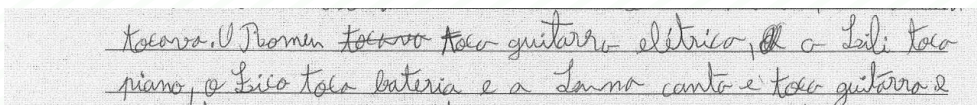 tocava. O Romeu tocava toca guitarra elétrica, a Lili toca
piano, o Zico toca bateria e a canta e toca guitarra e